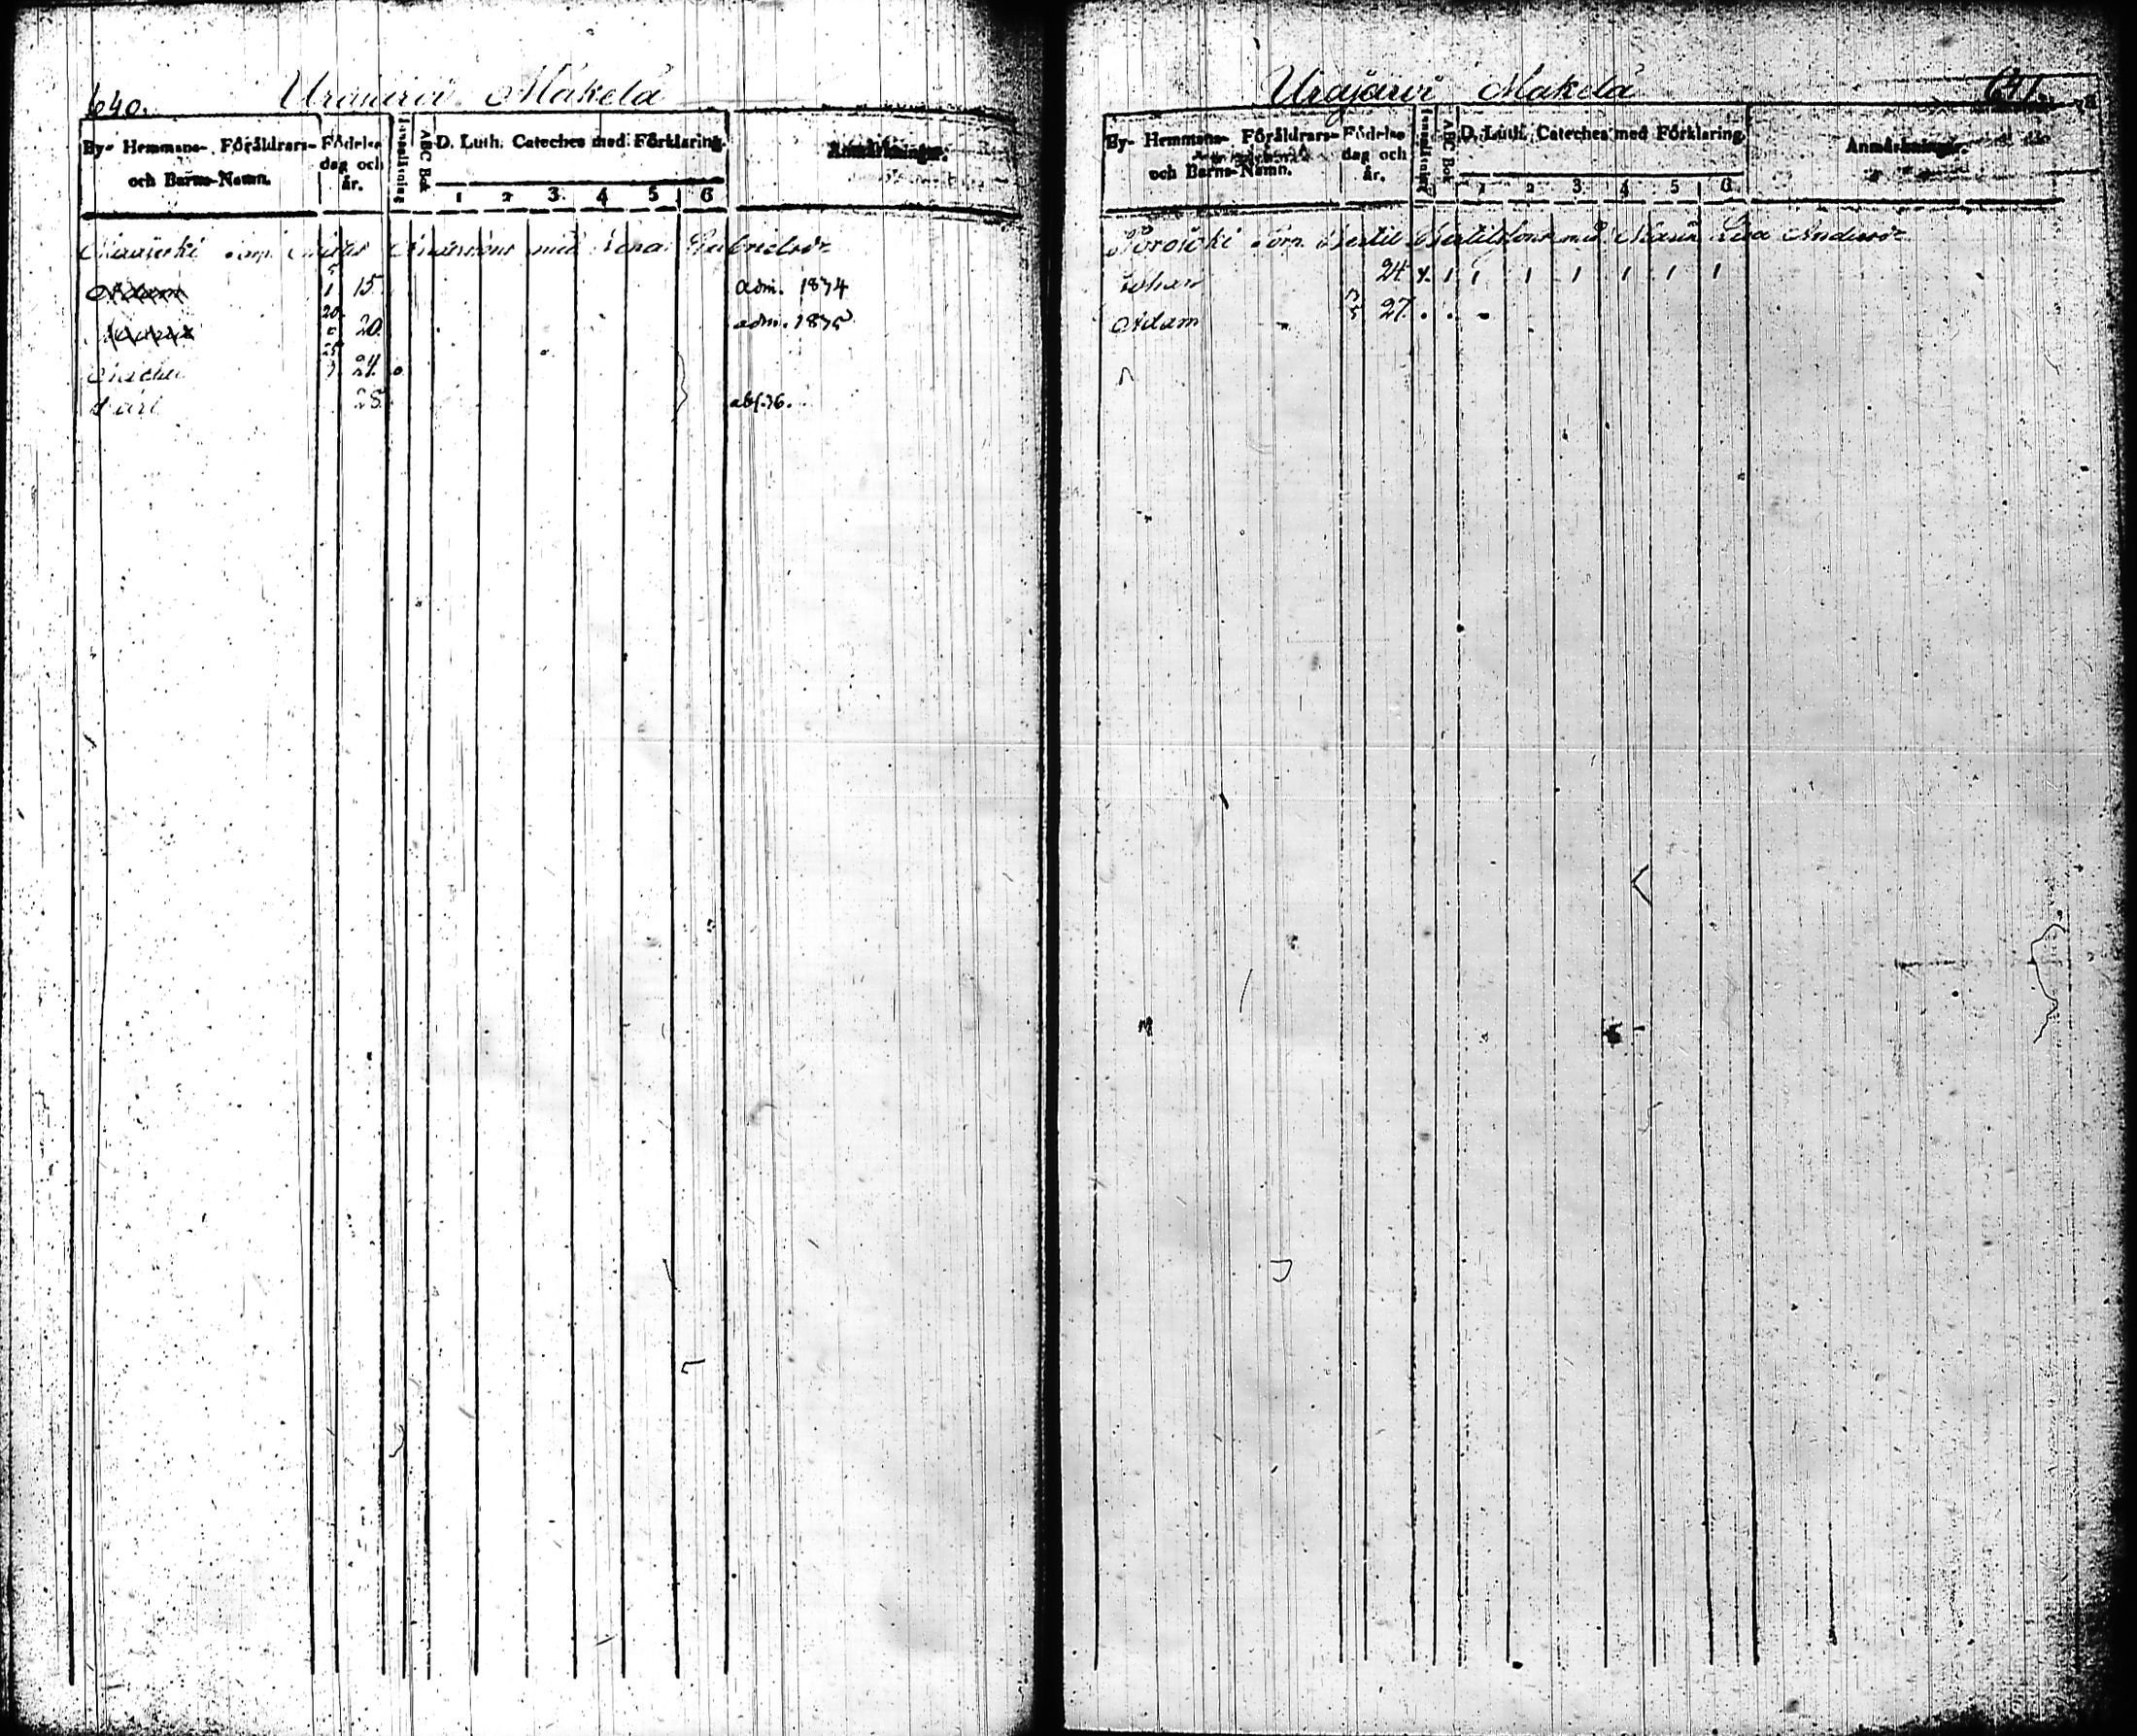 640. Urajärvi Mäkelä
By- Hemmans- Föräldrars- och Barns-Namn. Födelse dag och år. Innanläsning ABC Bok D. Luth. Cateches med Förklaring. Anmärkningar.
1 2 3 4 5 6
med Lena Gabrielsdr
Adam 5 1 15. adm. 1834
20. 20. adm. 1835
25 24.
Carl 28. abs. 36.
Urajärvi Mäkelä 641.
By- Hemmans- Föräldrars- och Barns-Namn. Födelse dag och år. Innanläsning ABC Bok D. Luth. Cateches med Förklaring. Anmärkningar.
1 2 3 4 5 6
Torp. Bertil Bertilsson med Maria Lisa Andersdr
Johan 24 x 1 1 1 1 1 1 1
Adam 27.